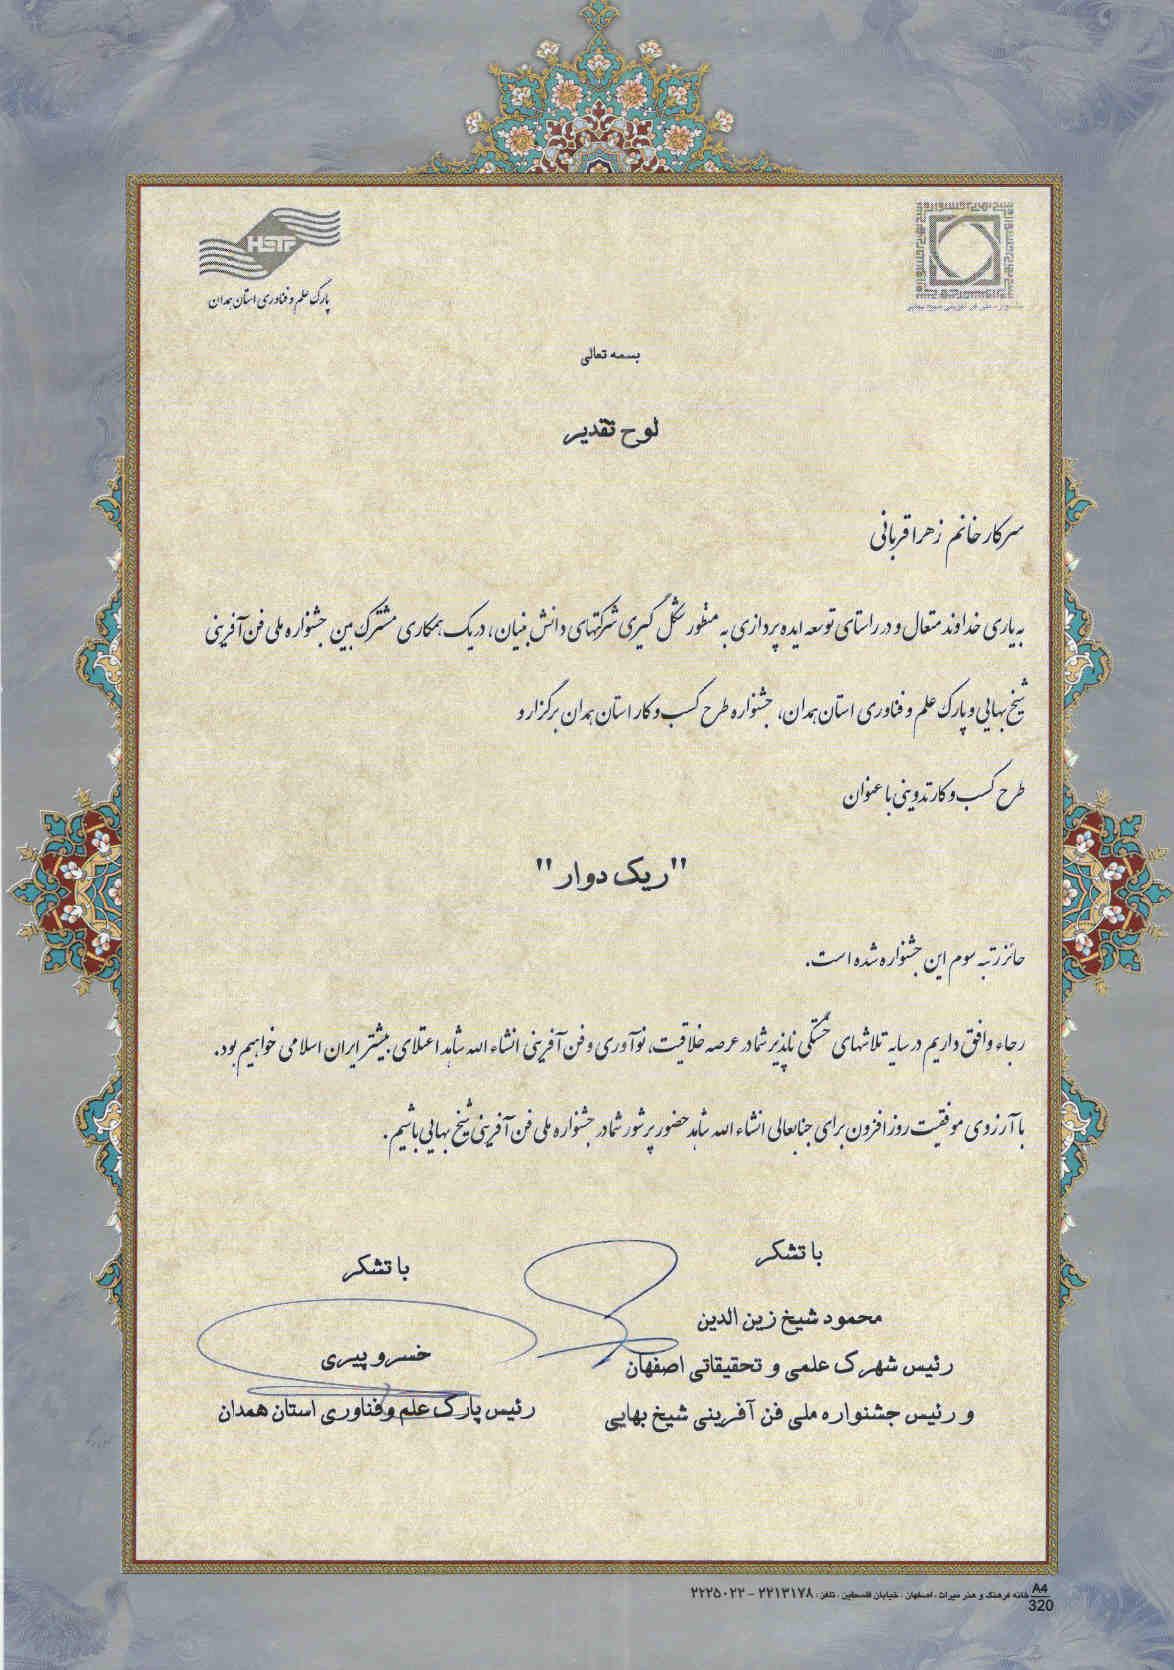 HSTP
پارک علم و فناوری استان همدان
جشنواره ملی فن آفرینی شیخ بهایی
بسمه تعالی
لوح تقدیر
سرکار خانم زهرا قربانی
به یاری خداوند متعال و در راستای توسعه ایده پردازی به منظور شکل گیری شرکتهای دانش بنیان، در یک همکاری مشترک بین جشنواره ملی فن آفرینی
شیخ بهایی و پارک علم و فناوری استان همدان، جشنواره طرح کسب و کار استان همدان برگزار و
طرح کسب و کار تدوینی با عنوان
"ریک دوار"
حائز رتبه سوم این جشنواره شده است.
رجاء واثق داریم در سایه تلاشهای خستگی ناپذیر شما در عرصه خلاقیت، نوآوری و فن آفرینی انشاء الله شاهد اعتلای بیشتر ایران اسلامی خواهیم بود.
با آرزوی موفقیت روز افزون برای جنابعالی انشاء الله شاهد حضور پرشور شما در جشنواره ملی فن آفرینی شیخ بهایی باشیم.
با تشکر
محمود شیخ زین الدین
رئیس شهرک علمی و تحقیقاتی اصفهان
و رئیس جشنواره ملی فن آفرینی شیخ بهایی
با تشکر
خسرو پیری
رئیس پارک علم و فناوری استان همدان
A4
320
خانه فرهنگ و هنر میراث ، اصفهان ، خیابان فلسطین ، تلفن : ۲۲۱۳۱۷۸ - ۲۲۲۵۰۲۲